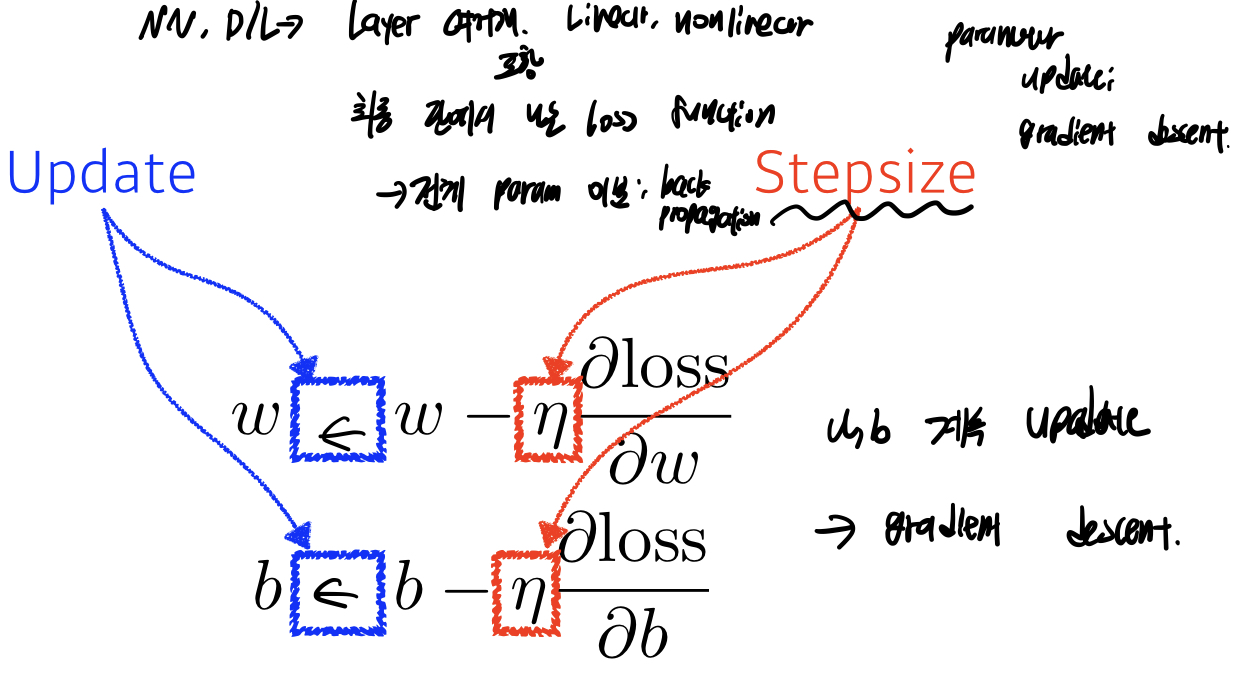 NN, D/L → Layer 여러개. Linear, nonlinear
포함
최종 단에서 나온 loss function
→ 전체 param 미분; back
propagation
parameter
update;
gradient descent.
Update
Stepsize
w ← w − η ∂loss/∂w
w, b 계속 update
→ gradient descent.
b ← b − η ∂loss/∂b